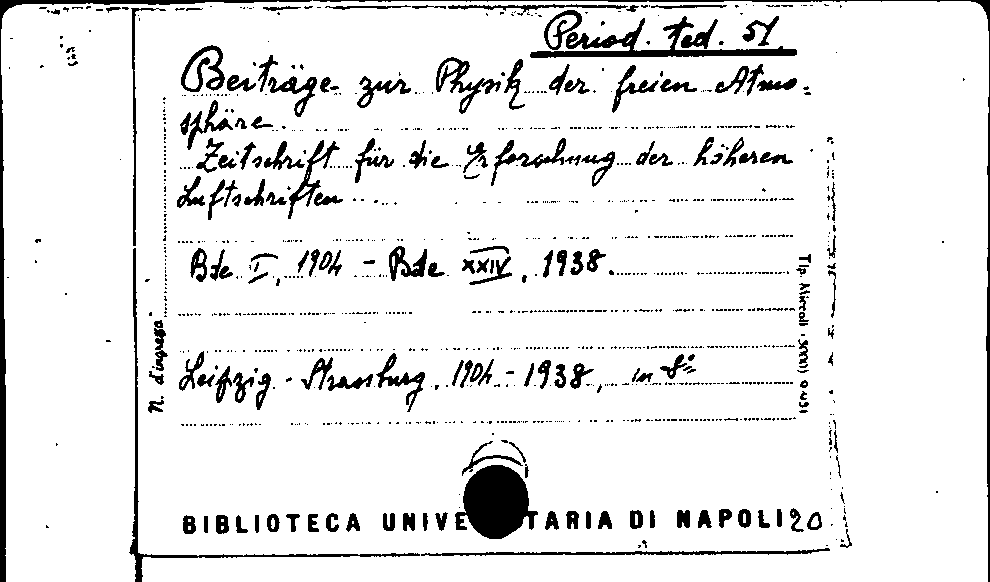 Period. ted. 51.
Beiträge zur Physik der freien Atmo-
sphäre.
Zeitschrift für die Erforschung der höheren
Luftschriften
Bde I, 1904 - Bde XXIV, 1938.
Leipzig - Strassburg, 1904 - 1938, in 8°
N. d'ingresso
BIBLIOTECA UNIVE TARIA DI NAPOLI 20